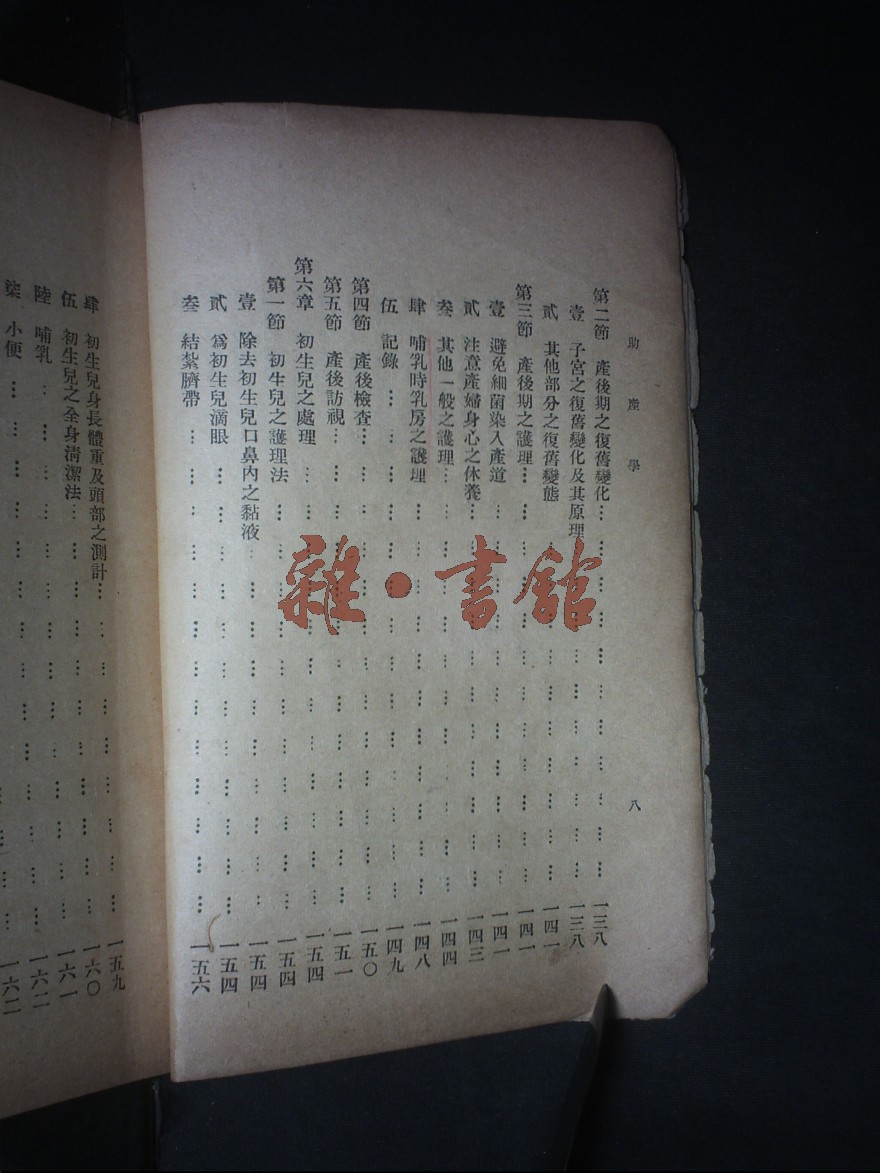 助產學 八
第二節 產後期之復舊變化………一三八
壹 子宮之復舊變化及其原理………一三八
貳 其他部分之復舊變態………一四一
第三節 產後期之護理………一四一
壹 避免細菌染入產道………一四一
貳 注意產婦身心之休養………一四三
叁 其他一般之護理………一四四
肆 哺乳時乳房之護理………一四八
伍 記錄………一四九
第四節 產後檢查………一五〇
第五節 產後訪視………一五一
第六章 初生兒之處理………一五四
第一節 初生兒之護理法………一五四
壹 除去初生兒口鼻內之黏液………一五四
貳 爲初生兒滴眼………一五四
叁 結紮臍帶………一五六
肆 初生兒身長體重及頭部之測計………一五九
伍 初生兒之全身清潔法………一六〇
陸 哺乳………一六一
柒 小便………一六二
一六二
雜·書館